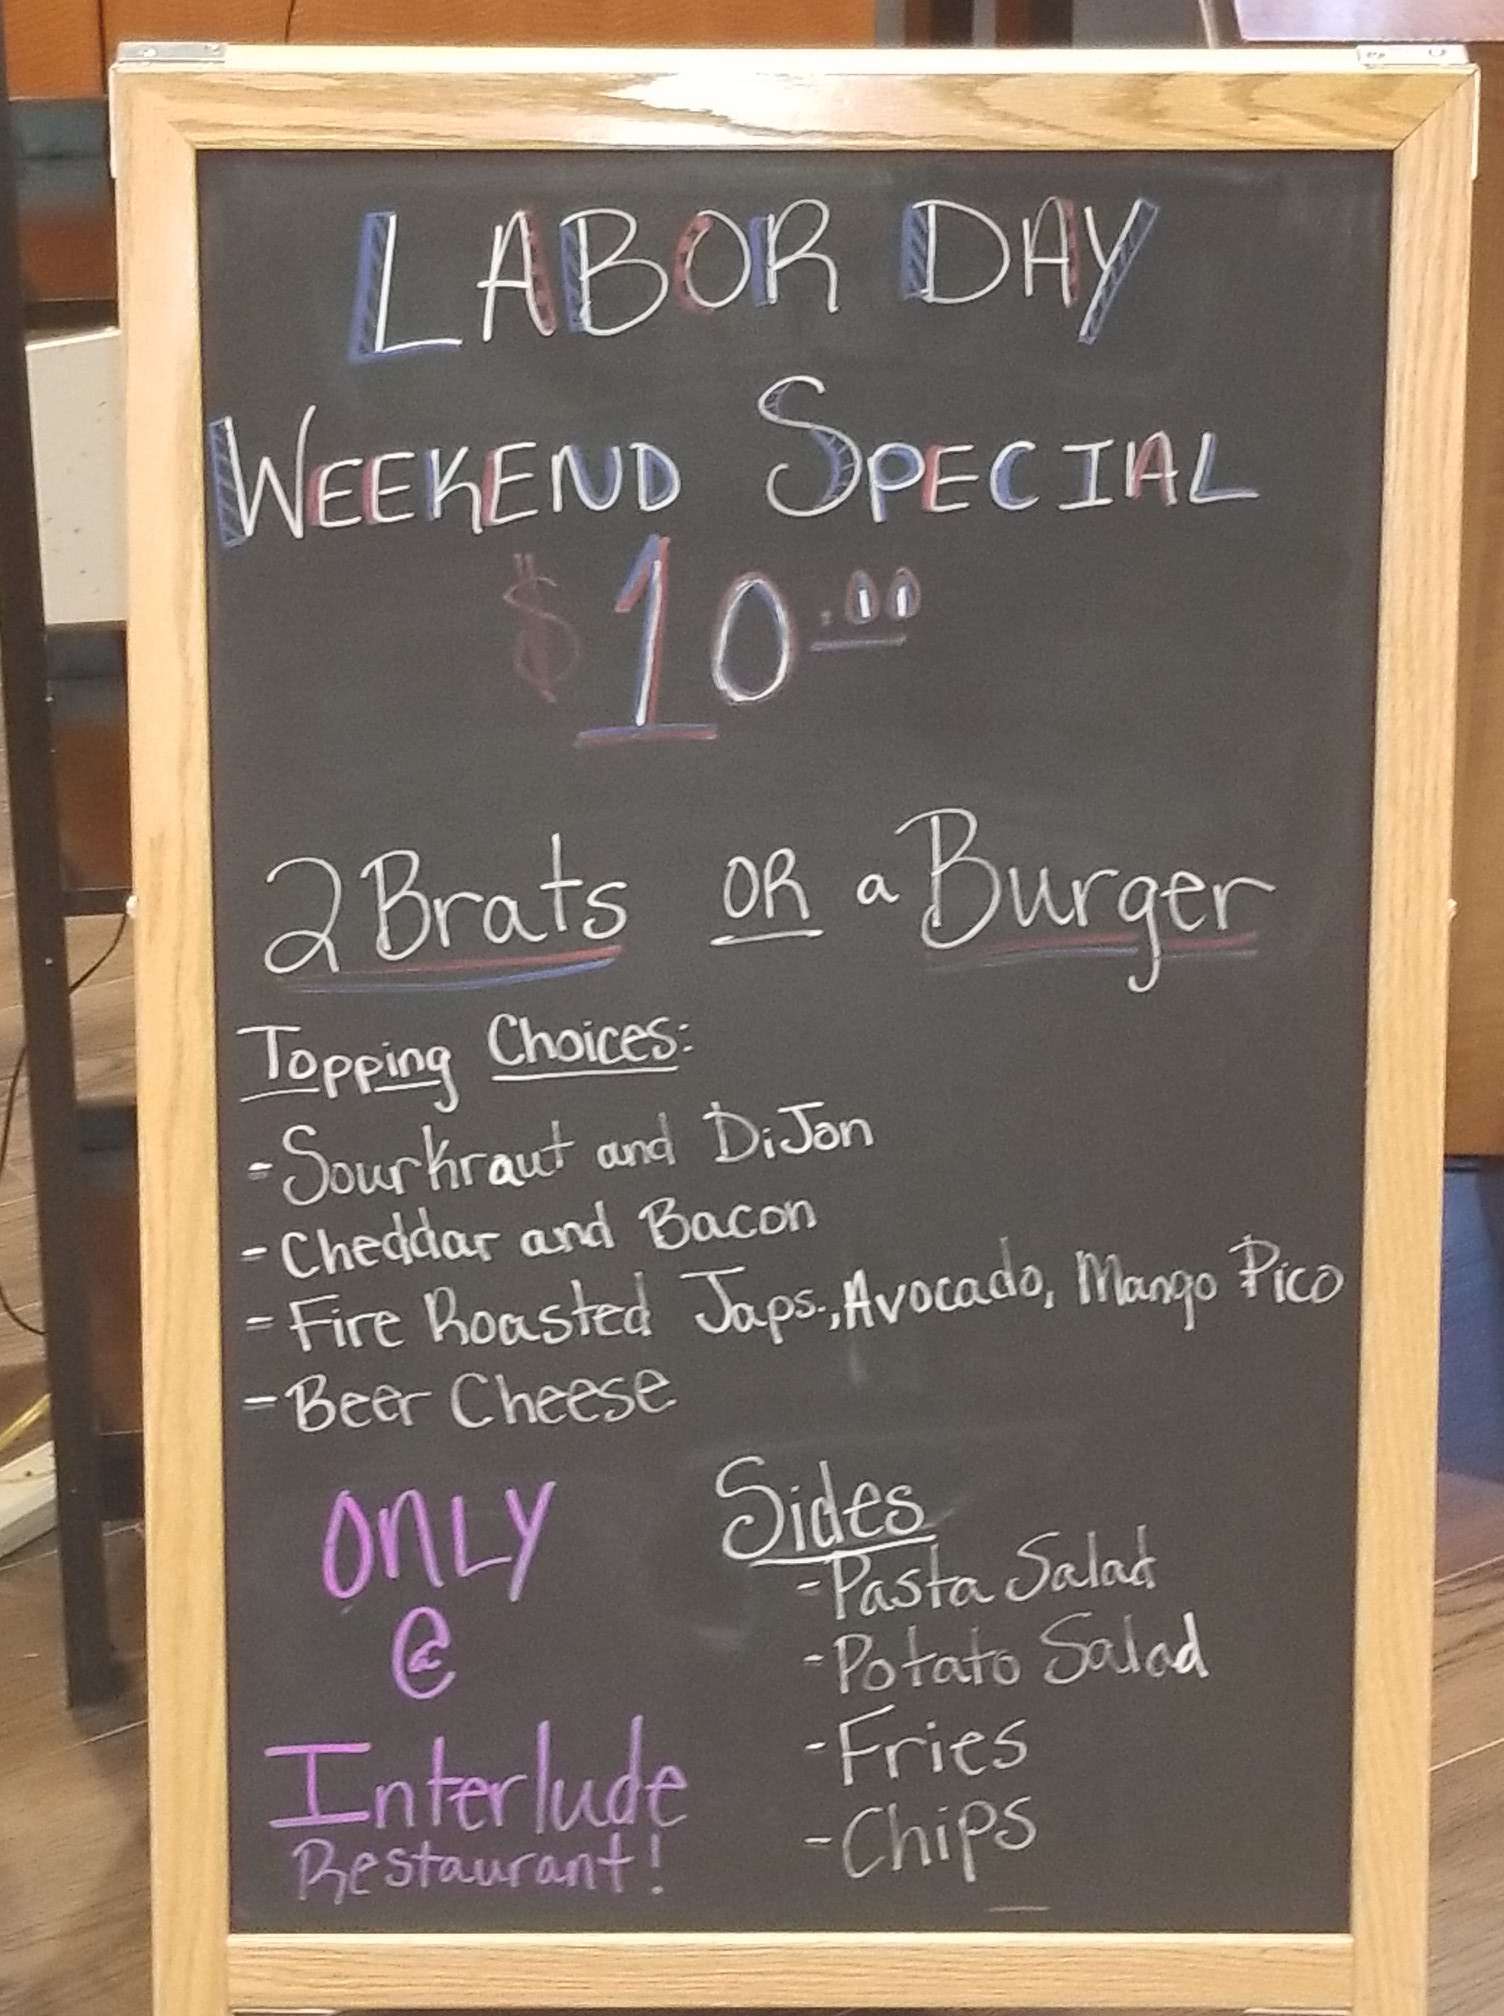 LABOR DAY
WEEKEND SPECIAL
$10.00
2 Brats OR a Burger
Topping Choices:
- Sourkraut and DiJon
- Cheddar and Bacon
- Fire Roasted Japs., Avocado, Mango Pico
- Beer Cheese
ONLY
@
Interlude
Restaurant!
Sides
- Pasta Salad
- Potato Salad
- Fries
- Chips